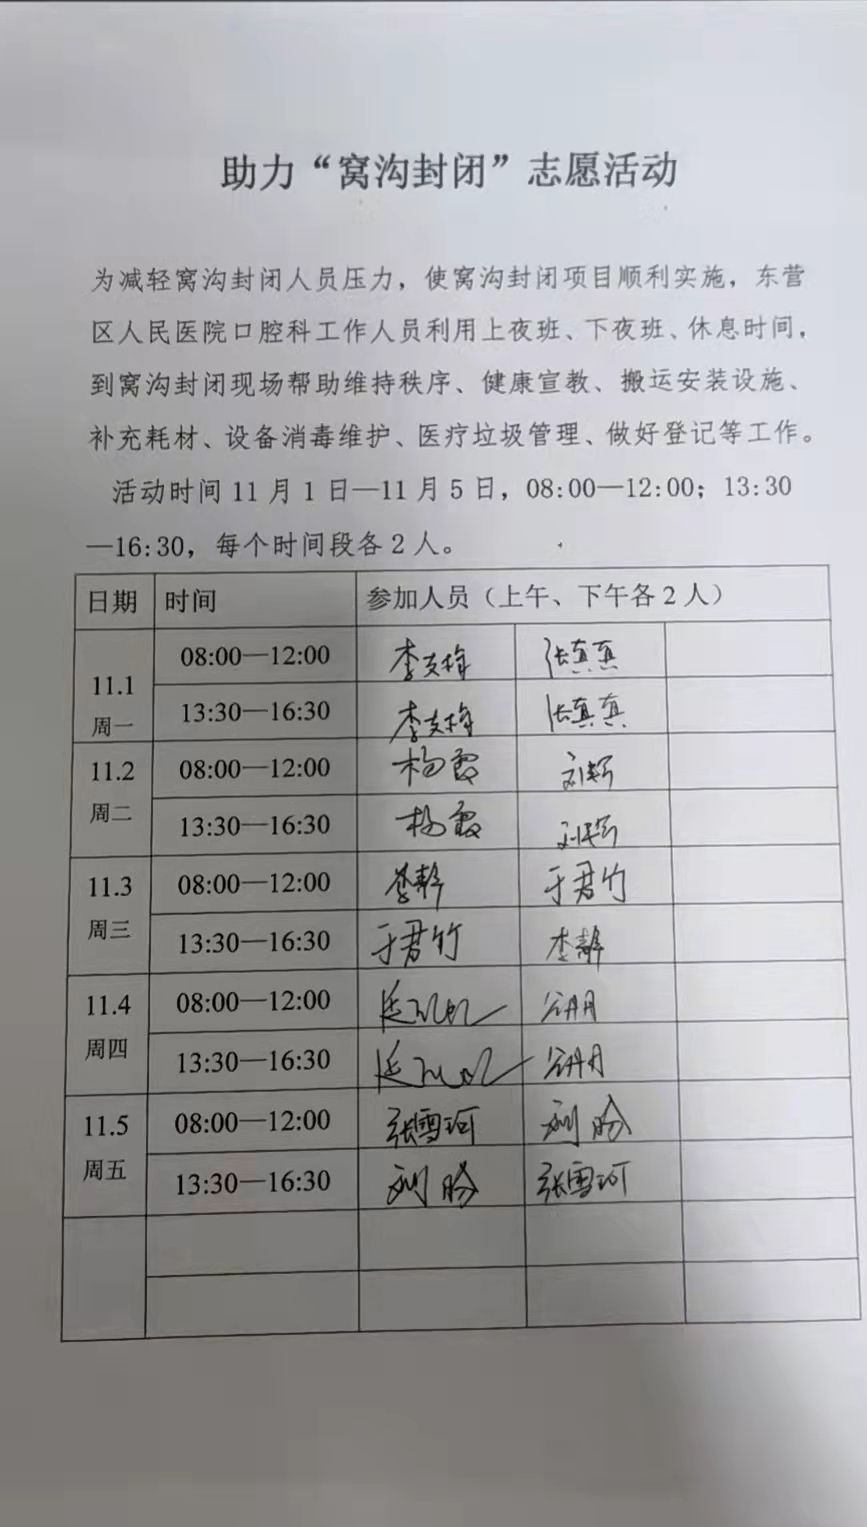 助力“窝沟封闭”志愿活动
为减轻窝沟封闭人员压力，使窝沟封闭项目顺利实施，东营
区人民医院口腔科工作人员利用上夜班、下夜班、休息时间，
到窝沟封闭现场帮助维持秩序、健康宣教、搬运安装设施、
补充耗材、设备消毒维护、医疗垃圾管理、做好登记等工作。
活动时间11月1日—11月5日，08:00—12:00；13:30
—16:30，每个时间段各2人。
日期 时间 参加人员（上午、下午各2人）
11.1 周一
08:00—12:00 张真真
13:30—16:30 张真真
11.2 周二
08:00—12:00 杨霞
13:30—16:30 杨霞
11.3 周三
08:00—12:00 李静 于君竹
13:30—16:30 于君竹 李静
11.4 周四
08:00—12:00
13:30—16:30
11.5 周五
08:00—12:00 张雪珂
13:30—16:30 张雪珂